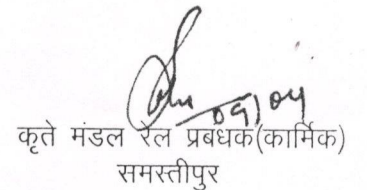 09/04
कृते मंडल रेल प्रबधक(कार्मिक)
समस्तीपुर